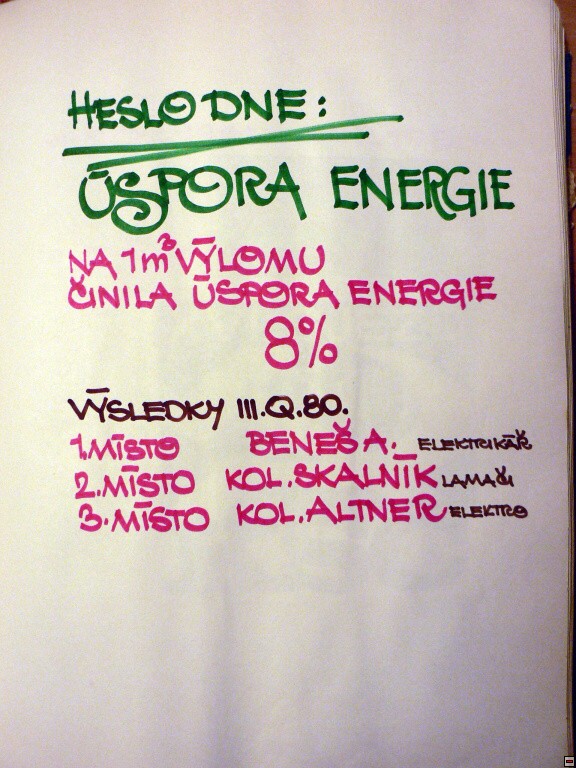 HESLO DNE:
ÚSPORA ENERGIE
NA 1m³ VÝLOMU
ČINILA ÚSPORA ENERGIE
8%
VÝSLEDKY III.Q.80.
1.MÍSTO BENEŠ A. ELEKTRIKÁŘ
2.MÍSTO KOL.SKALNÍK LAMAČI
3.MÍSTO KOL.ALTNER ELEKTRO